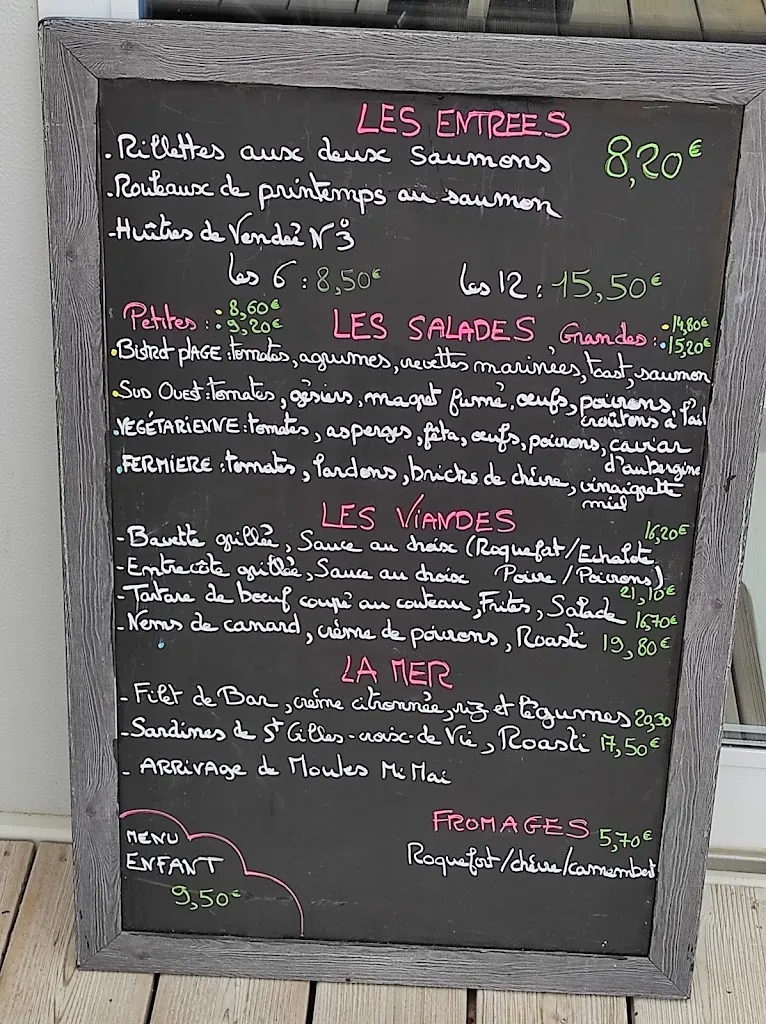 LES ENTREES
. Rillettes aux deux Saumons 8,20€
. Rouleaux de printemps au saumon
- Huîtres de Vendée N°3
Les 6 : 8,50€ Les 12 : 15,50€
Petites : • 8,60€ • 9,20€ LES SALADES Grandes : • 14,80€ • 15,20€
• BISTROT PLAGE : tomates, agrumes, crevettes marinées, toast, saumon
• SUD OUEST : tomates, gésiers, magret fumé, œufs, poivrons, croûtons à l'ail
• VEGÉTARIENNE : tomates, asperges, fêta, œufs, poivrons, caviar d'aubergine
• FERMIERE : tomates, lardons, bricks de chèvre, vinaigrette miel
LES VIANDES
- Bavette grillée, Sauce au choix (Roquefort/Echalote 16,20€
- Entrecôte grillée, Sauce au choix Poivre/Poivrons) 21,10€
- Tartare de boeuf coupé au couteau, Frites, Salade 16,70€
- Nems de canard, crème de poivrons, Roasti 19,80€
LA MER
- Filet de Bar, crème citronnée, riz et légumes 20,30
- Sardines de St Gilles-croix-de Vie, Roasti 17,50€
- ARRIVAGE de Moules Mi Mai
FROMAGES 5,70€
Roquefort/chèvre/camembert
MENU
ENFANT
9,50€